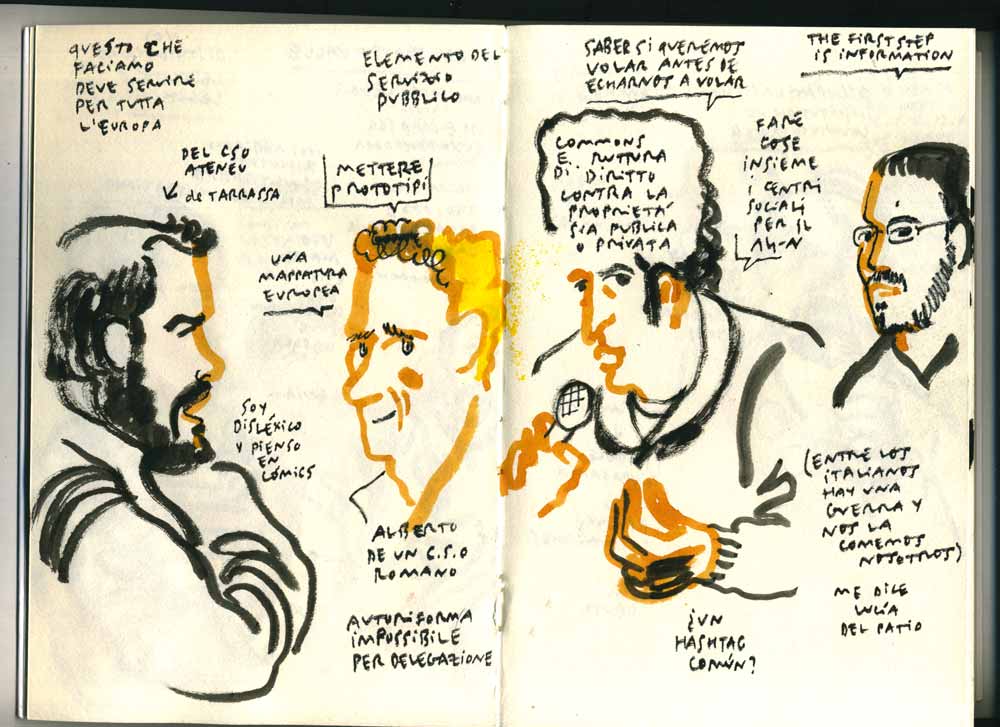 QUESTO CHE
FACIAMO
DEVE SERVIRE
PER TUTTA
L'EUROPA
ELEMENTO DEL
SERVIZIO
PUBBLICO
DEL CSO
ATENEU
de TARRASSA
METTERE
PROTOTIPI
UNA
MAPPATURA
EUROPEA
SOY
DISLÉXICO
Y PIENSO
EN
CÓMICS
ALBERTO
DE UN C.S.O
ROMANO
AUTORIFORMA
IMPOSSIBILE
PER DELEGAZIONE
SABER SI QUEREMOS
VOLAR ANTES DE
ECHARNOS A VOLAR
THE FIRST STEP
IS INFORMATION
COMMONS
E.. RUTURA
DI DIRITTO
CONTRA LA
PROPRIETÁ
SIA PUBLICA
O PRIVATA
FARE
COSE
INSIEME
I CENTRI
SOCIALI
PER IL
(ENTRE LOS
ITALIANOS
HAY UNA
GUERRA Y
NOS LA
COMEMOS
NOSOTROS)
ME DICE
LUCÍA
DEL PATIO
¿UN
HASHTAG
COMÚN?